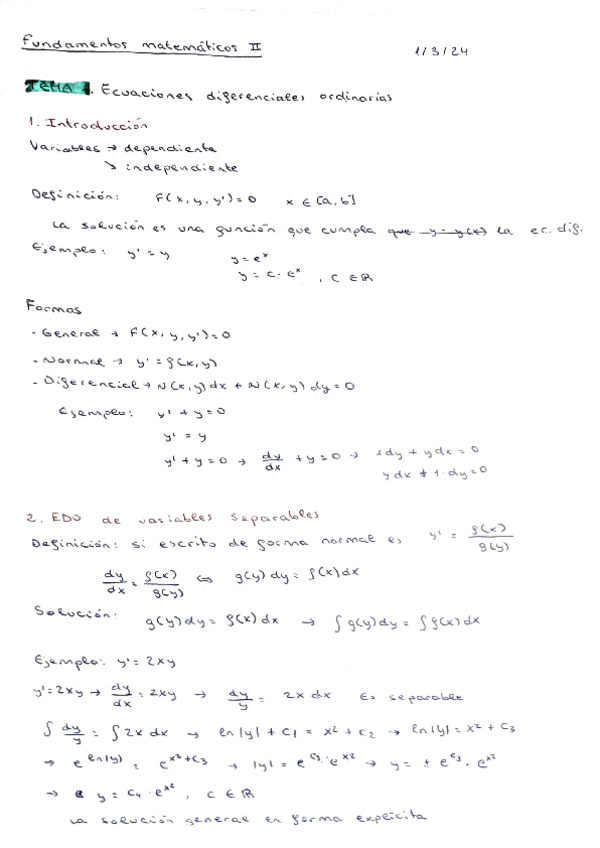 Fundamentos matemáticos II
1/3/24
TEMA 1. Ecuaciones diferenciales ordinarias
1. Introducción
Variables → dependiente
↘ independiente
Definición: F(x, y, y') = 0 x ∈ [a, b]
La solución es una función que cumpla que y = y(x) la ec. dif.
Ejemplo: y' = y y = e^x
y = c · e^x , c ∈ ℝ
Formas
- General → F(x, y, y') = 0
- Normal → y' = f(x, y)
- Diferencial → N(x, y) dx + N(x, y) dy = 0
Ejemplo: y' + y = 0
y' = y
y' + y = 0 → dy/dx + y = 0 → 1 dy + y dx = 0
y dx + 1 · dy = 0
2. EDO de variables separables
Definición: si escrito de forma normal es y' = f(x)/g(y)
dy/dx = f(x)/g(y) ⇔ g(y) dy = f(x) dx
Solución: g(y) dy = f(x) dx → ∫ g(y) dy = ∫ f(x) dx
Ejemplo: y' = 2xy
y' = 2xy → dy/dx = 2xy → dy/y = 2x dx Es separable
∫ dy/y = ∫ 2x dx → ln|y| + C1 = x² + C2 → ln|y| = x² + C3
→ e^(ln|y|) = e^(x²+C3) → |y| = e^C3 · e^x² → y = ± e^C3 · e^x²
→ y = C4 · e^x² , C ∈ ℝ
La solución general en forma explícita